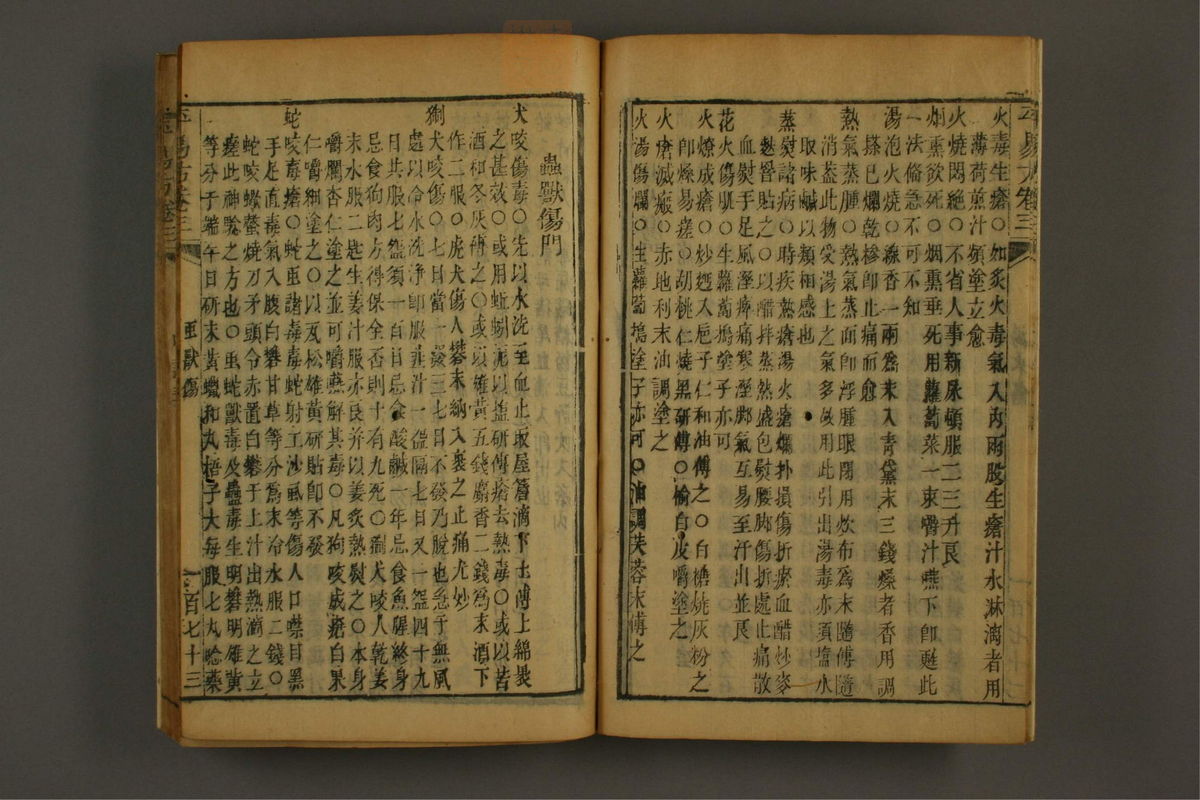 火毒生瘡○如炙火毒氣入内兩股生瘡汁水淋漓者用
薄荷煎汁頻塗立愈
火燒悶絶○不省人事新尿頓服二三升良
烟熏欲死○烟熏垂死用蘿蔔菜一束嚼汁嚥下即甦此
一法備急不可不知
湯泡火燒○線香一兩爲末入青黛末三錢燥者香用調
搽已爛乾摻即止痛而愈
熱氣蒸腫○熱氣蒸面即浮腫眼閉用炊布爲末隨傅隨
消葢此物受湯上之氣多故用此引出湯毒亦須塩水
取味鹹以類相感也
蒸熨諸病○時疾熱瘡湯火瘡爛扑損傷折瘀血醋炒麥
麩罯貼之○以醋拌蒸熱盛包熨腰脚傷折處止痛散
血熨手足風溼痺痛寒溼脚氣互易至汗出並良
花火傷肌○生蘿蔔搗塗子亦可
火燎成瘡○炒
入巵子仁和油傅之○白糖燒灰粉之
即燥易瘥○胡桃仁燒黑研傅○榆白皮嚼塗之
火瘡滅瘢○赤地利末油調塗之
火湯傷爛○生蘿蔔搗塗子亦可○油調芙蓉末傅之
蟲獸傷門
犬咬傷毒○先以水洗至血止取屋簷滴下土傅上綿褁
之甚效○或用蚯蚓泥以塩研傅瘡去熱毒○或以苦
酒和冬灰傅之○或以雄黃五錢麝香二錢爲末酒下
作二服○虎犬傷人礬末納入褁之止痛尤妙
猘犬咬傷○七日當一發三七日不發乃脫也急于無風
處以冷水洗淨即服韭汁一盌隔七日又一盌四十九
日共服七盌須一百日忌食酸鹹一年忌食魚腥終身
忌食狗肉方得保全否則十有九死○猘犬咬人乾姜
末水服二匙生姜汁服亦良并以姜炙熱熨之○本身
嚼爛杏仁塗之並可嚼嚥解其毒○凡狗咬成瘡白果
仁嚼細塗之○以瓦松雄黃研貼即不發
蛇咬毒瘡○蛇虫諸毒毒蛇射工沙虱等傷人口噤目黑
手足直毒氣入腹白礬甘草等分爲末冷水服二錢○
蛇咬蠍螫燒刀矛頭令赤置白礬于上汁出熱滴之立
瘥此神驗之方也○虫蛇獸毒及蠱毒生明礬明雄黃
等分于端午日研末黃蠟和丸梧子大每服七丸唸藥
虫獸傷
一百七十三